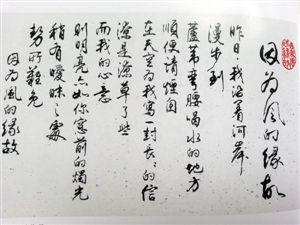 因为风的缘故
昨日我沿着河岸
漫步到
芦苇弯腰喝水的地方
顺便请烟囱
在天空为我写一封长长的信
潦是潦草了些
而我的心意
则明亮亦如你窗前的烛光
稍有暧昧之处
势所难免
因为风的缘故